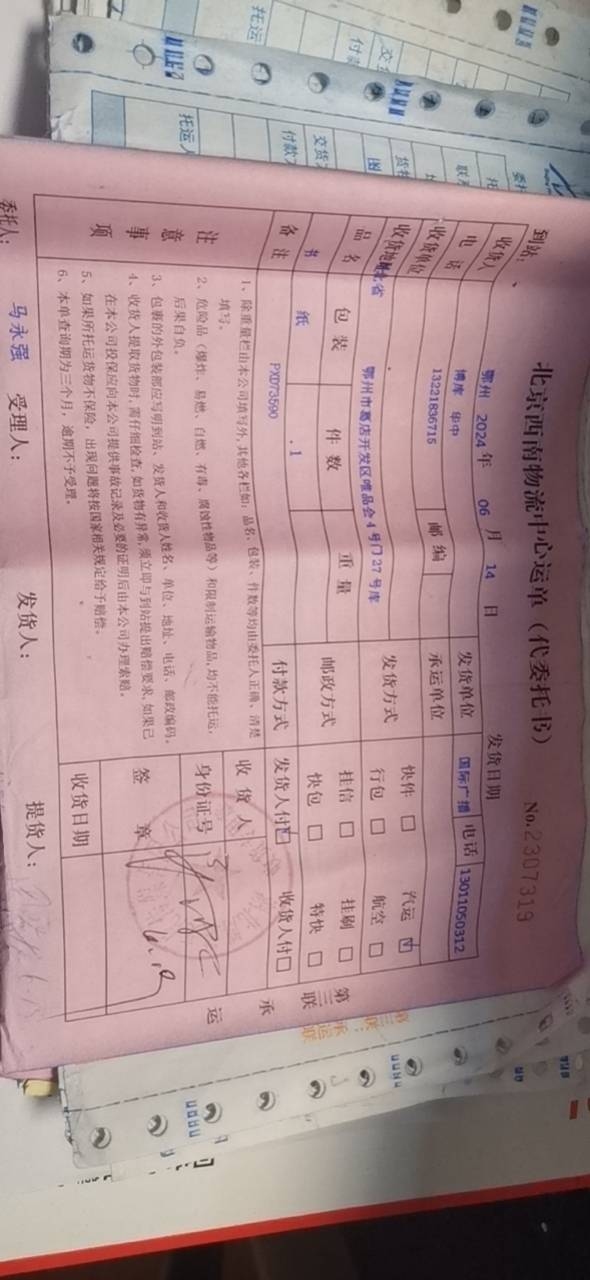 北京西南物流中心运单（代委托书）
No.2307319
到站： 鄂州 2024 年 06 月 14 日 发货日期
收货人 博库 华中 发货单位 国际广播 电话 13011050312
电话 13221836715 邮编 承运单位
收货单位 快件 □ 汽运 ☑
收货地址 省 鄂州市葛店开发区唯品会4号门27号库 发货方式 行包 □ 航空 □
品名 包装 件数 重量 邮政方式 挂信 □ 挂刷 □
图书 纸 1 快包 □ 特快 □
备注 PXD73590 付款方式 发货人付☑ 收货人付□
注意事项
1、除重量栏由本公司填写外，其他各栏如：品名、包装、件数等均由委托人正确、清楚
填写。
2、危险品（爆炸、易燃、自燃、有毒、腐蚀性物品等）和限制运输物品，均不能托运，
后果自负。
3、包裹的外包装部应写明到站、发货人和收货人姓名、单位、地址、电话、邮政编码。
4、收货人提取货物时，需仔细检查，如货物有异常，须立即与到站提出赔偿要求，如果已
在本公司投保应向本公司提供事故记录及必要的证明后由本公司办理索赔。
5、如果所托运货物不保险，出现问题将按国家相关规定给予赔偿。
6、本单查询期为三个月，逾期不予受理。
收货人
身份证号
签章
收货日期
第三联 承运
委托人： 马永强 受理人： 发货人： 提货人：